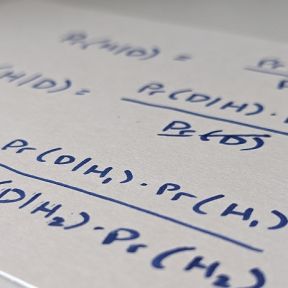 Pr(H|D) = Pr
(H|D) = Pr(D|H) ·
Pr(D)
Pr(D|H₁) · Pr(H₁)
(D|H₂) · Pr(H₂)